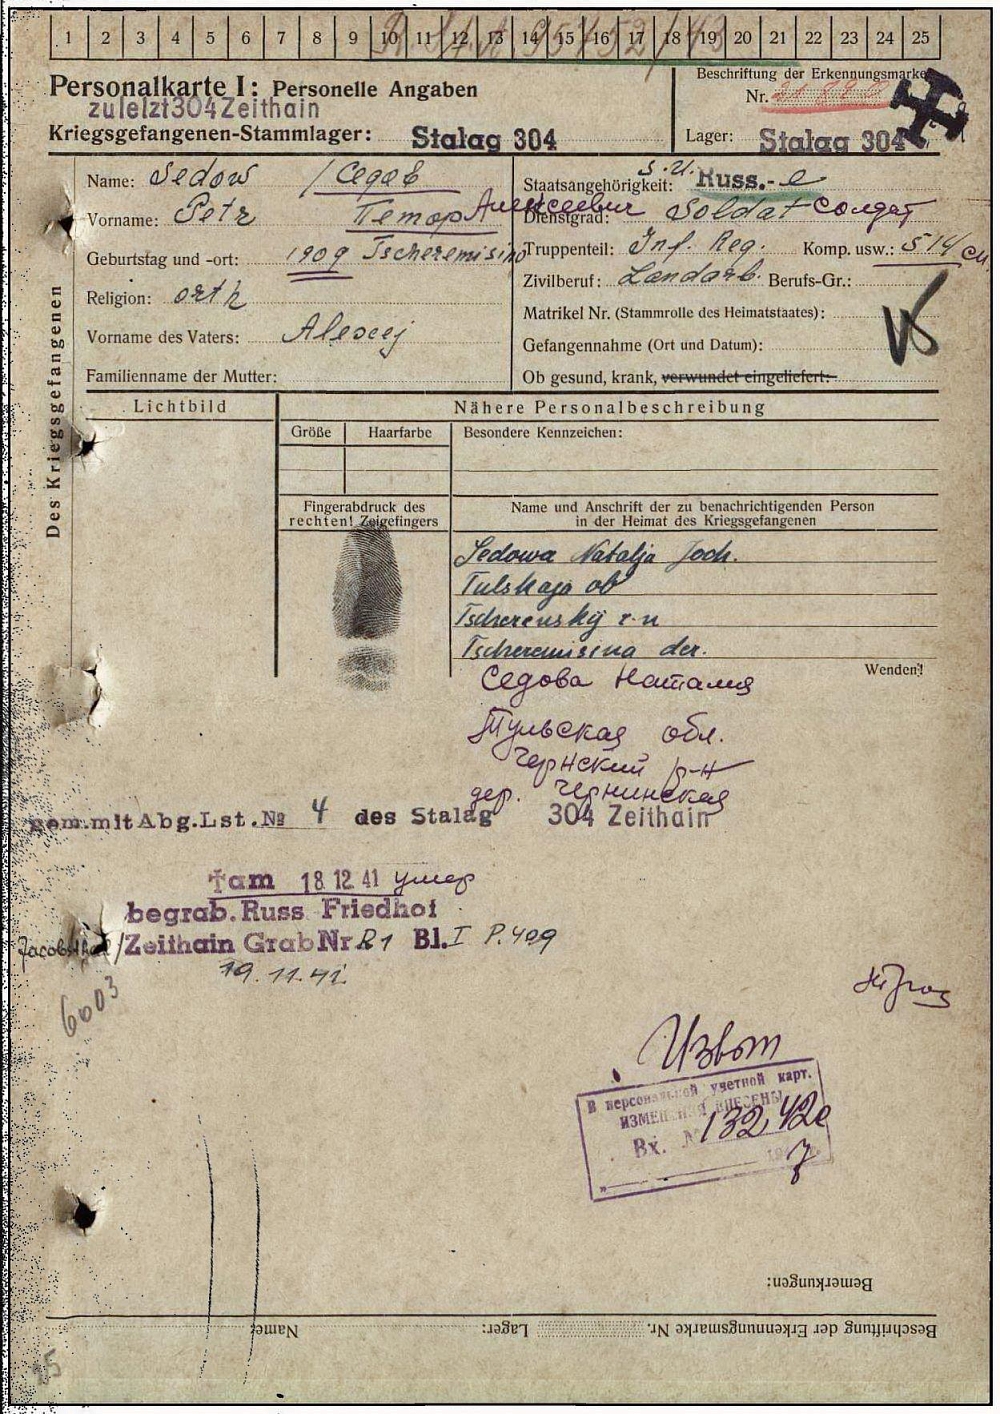 1 2 3 4 5 6 7 8 9 10 11 12 13 14 15 16 17 18 19 20 21 22 23 24 25
Personalkarte I: Personelle Angaben
zuletzt 304 Zeithain
Kriegsgefangenen-Stammlager: Stalag 304
Beschriftung der Erkennungsmarke
Nr.
Lager: Stalag 304
Des Kriegsgefangenen
Name: Sedow / Седов
Vorname: Petr Петор Алексеевич
Geburtstag und -ort: 1909 Tscheremisino
Religion: orth
Vorname des Vaters: Alexej
Familienname der Mutter:
S. U.
Staatsangehörigkeit: Russ.-e
Dienstgrad: Soldat солдат
Truppenteil: Inf. Reg. Komp. usw.: 514 сп
Zivilberuf: Landarb. Berufs-Gr.:
Matrikel Nr. (Stammrolle des Heimatstaates):
Gefangennahme (Ort und Datum):
Ob gesund, krank, verwundet eingeliefert:
Lichtbild
Nähere Personalbeschreibung
Größe Haarfarbe Besondere Kennzeichen:
Fingerabdruck des
rechten! Zeigefingers
Name und Anschrift der zu benachrichtigenden Person
in der Heimat des Kriegsgefangenen
Sedowa Natalja Joch.
Tulskaja ob
Tscherensky r-n
Tscheremisina der.
Wenden!
Седова Наталия
Тульская обл.
Чернский р-н
дер. Чернинская
gem. mit Abg. Lst. № 4 des Stalag 304 Zeithain
† am 18.12.41 умер
begrab. Russ Friedhof
Jacobsthal/Zeithain Grab Nr R1 Bl. I P. 409
19.11.41.
6003
Извещ
В персональной учетной карт.
ИЗМЕНЕНИЯ ВНЕСЕНЫ
Вх. №
Bemerkungen:
Beschriftung der Erkennungsmarke Nr. Lager: Name: